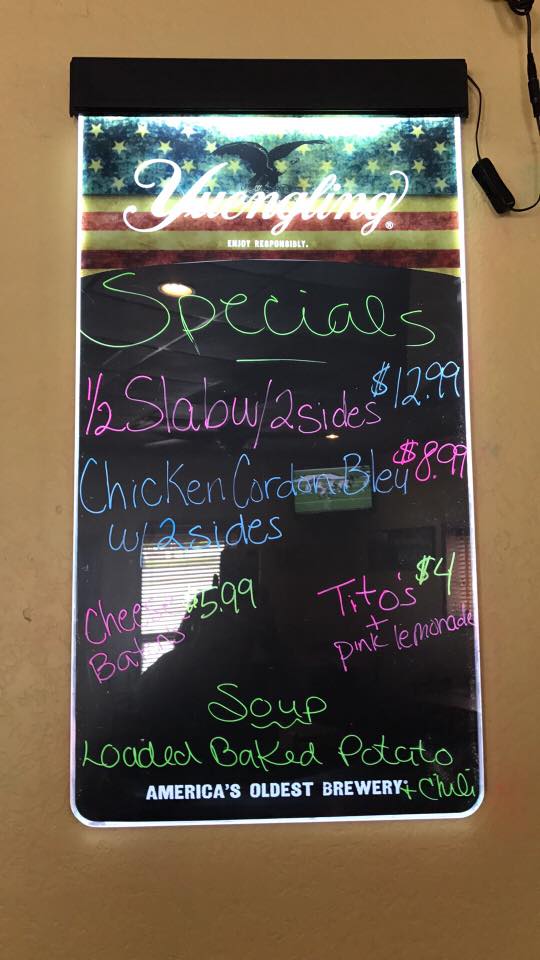 Yuengling®
ENJOY RESPONSIBLY.
Specials
1/2 Slab w/2 sides $12.99
Chicken Cordon Bleu $8.99
w/ 2 sides
Cheese $5.99
Tito's $4
+
pink lemonade
Soup
Loaded Baked Potato
+ Chili
AMERICA'S OLDEST BREWERY